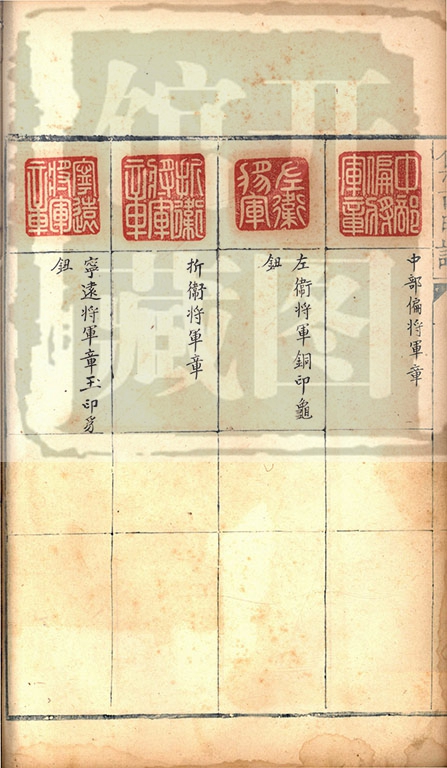 中部偏將軍章
中部偏将軍章
左衛將軍
左衛将軍銅印龜
鈕
折衝將軍章
折衝将軍章
寧遠將軍章
寧遠将軍章玉印
鈕
开图
馆藏